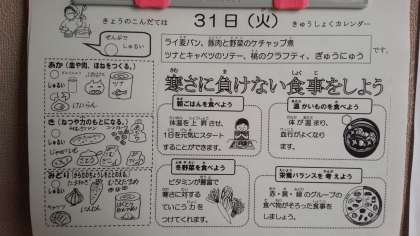 きょうのこんだては
31日（火）
きゅうしょくカレンダー
ぜんぶで
しゅるい
ライ麦パン、豚肉と野菜のケチャップ煮
ツナとキャベツのソテー、桃のクラフティ、ぎゅうにゅう
です。
寒さに負けない食事をしよう
あか（血や肉、ほねをつくる。）
しゅるい
ツナ
き（ねつや力のもとになる。）
しゅるい
みどり
しゅるい
たまねぎ
にんじん
朝ごはんを食べよう
体温を上昇させ、
1日を元気にスタート
することができます。
温かいものを食べよう
体が温まり、
血行がよくなり
ます。
冬野菜を食べよう
ビタミンが豊富で
寒さに対する
ていこう力を
つけてくれます。
栄養バランスを考えよう
赤・黄・緑のグループの
食べ物がそろった食事を
しましょう。